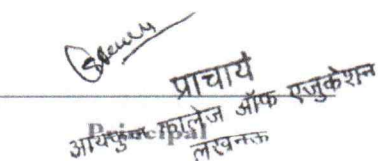 प्राचार्य
कालेज ऑफ एजुकेशन
Principal
लखनऊ